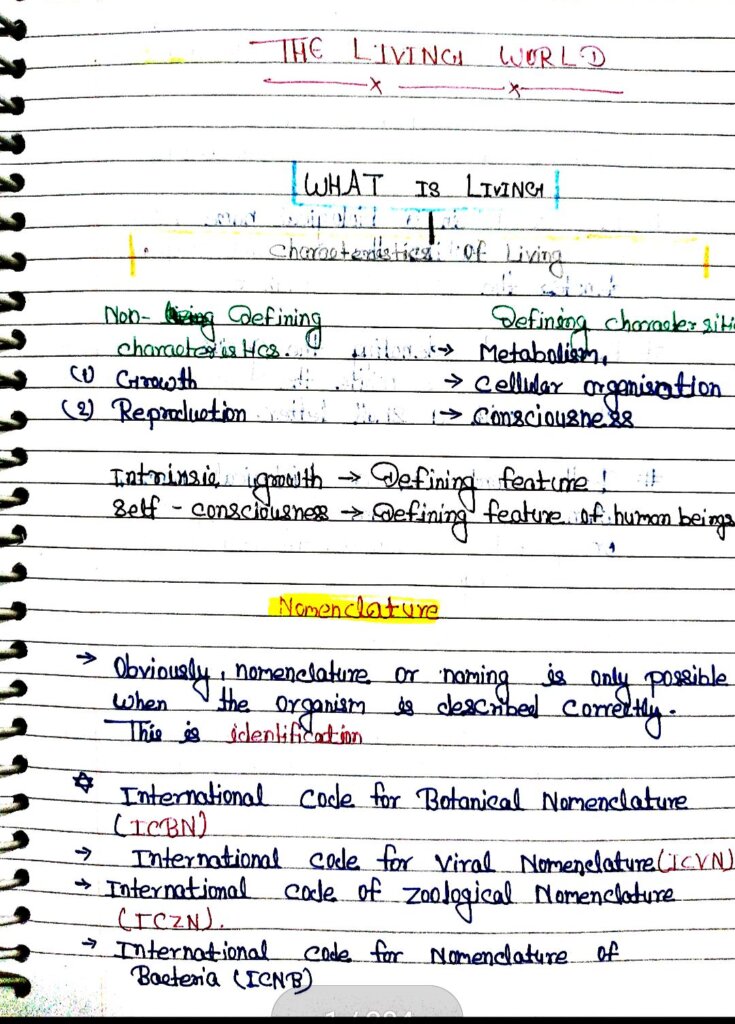 THE LIVING WORLD
WHAT IS LIVING
Characteristics of Living
Non- defining
characteristics.
(1) Growth
(2) Reproduction
Defining charactersiti
→ Metabolism,
→ Cellular organisation
→ Consciousness
Intrinsic growth → Defining feature !
Self - consciousness → Defining feature of human beings
Nomenclature
→ Obviously, nomenclature or naming is only possible
when the organism is described correctly.
This is identification
☆ International Code for Botanical Nomenclature
(ICBN)
→ International code for Viral Nomenclature (ICVN)
→ International code of Zoological Nomenclature
(ICZN).
→ International code for Nomenclature of
Bacteria (ICNB)